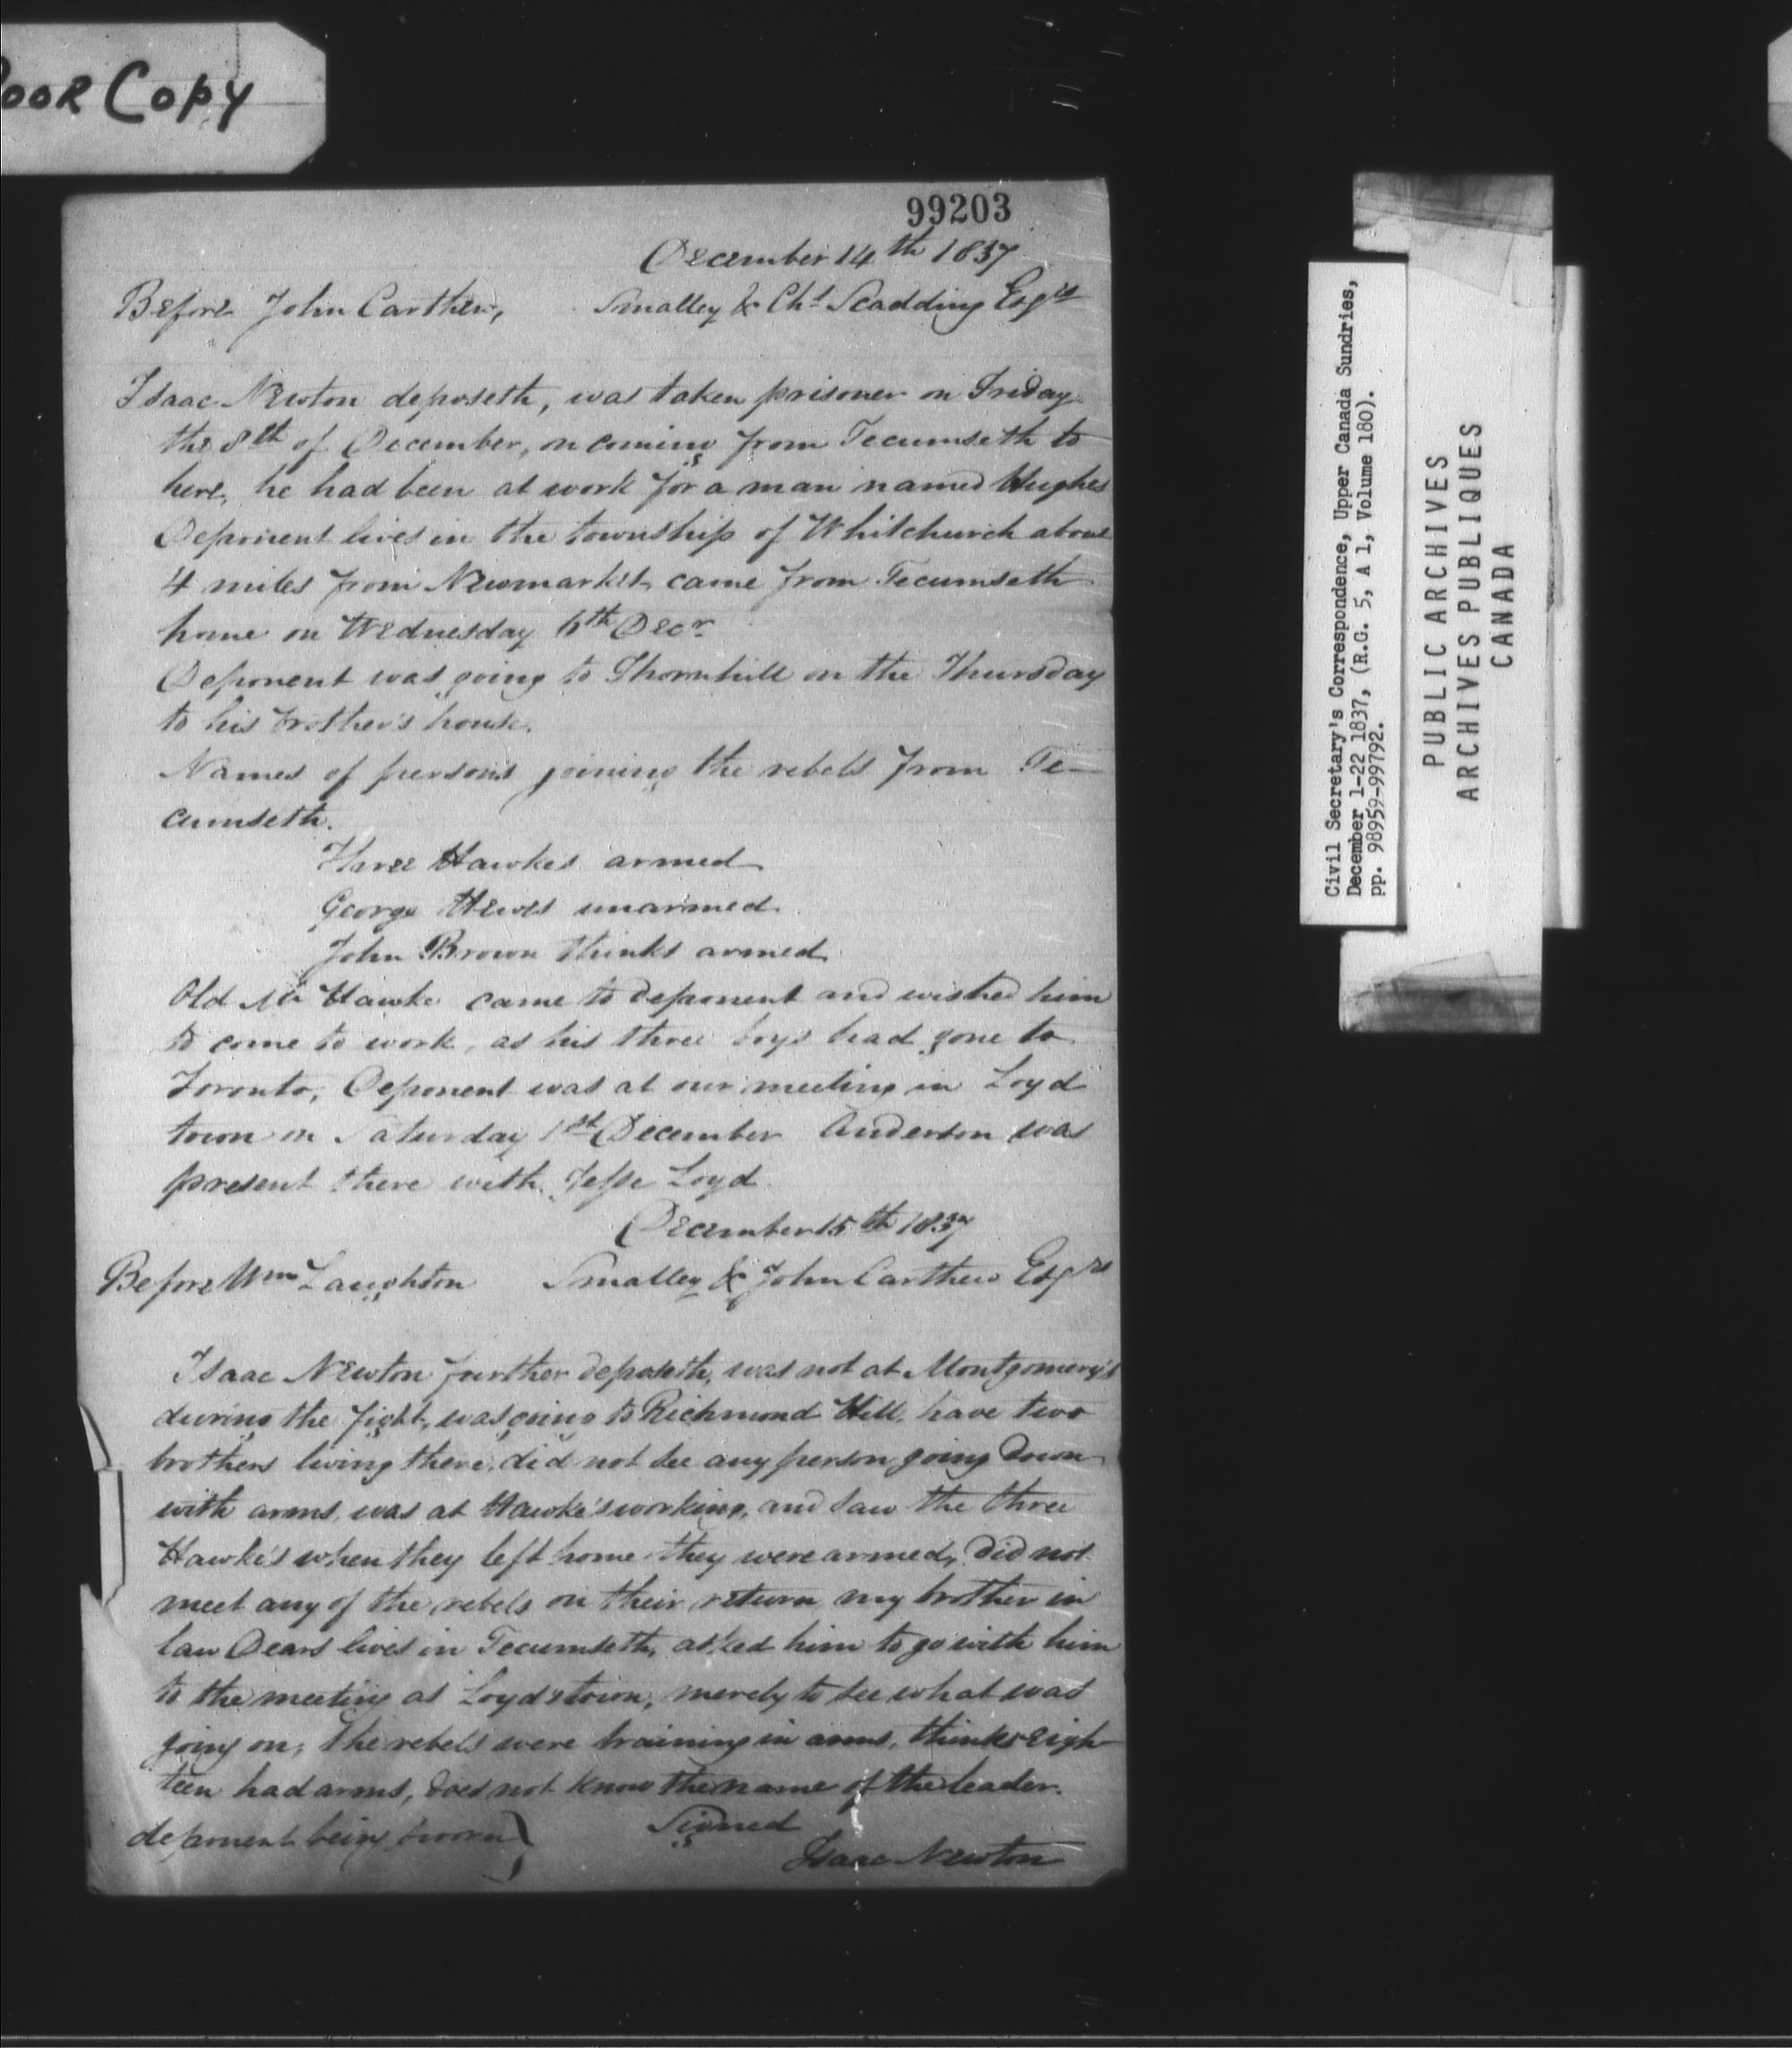 POOR COPY
99203
December 14th 1837
Before John Carthew, Smalley & Chs Scadding Esqrs
Isaac Newton deposeth, was taken prisoner on Friday
the 8th of December, on coming from Tecumseth to
here, he had been at work for a man named Hughes
Deponent lives in the township of Whitchurch about
4 miles from Newmarket, came from Tecumseth
home on Wednesday 6th Decr
Deponent was going to Thornhill on the Thursday
to his brother's house.
Names of persons joining the rebels from Te-
cumseth.
Three Hawkes armed
George Hewes unarmed
John Brown thinks armed
Old Mr Hawke came to deponent and wished him
to come to work, as his three boys had gone to
Toronto, Deponent was at our meeting in Loyd
town on Saturday 1st December Anderson was
present there with Jesse Loyd
December 15th 1837
Before Wm Laughton Smalley & John Carthew Esqrs
Isaac Newton further deposeth, was not at Montgomery's
during the fight, was going to Richmond Hill, have two
brothers living there, did not see any person going down
with arms, was at Hawke's working, and saw the three
Hawke's when they left home they were armed, did not
meet any of the rebels on their return my brother in
law Dears lives in Tecumseth, asked him to go with him
to the meeting at Loydstown, merely to see what was
going on, The rebels were training in arms, thinks eigh-
teen had arms, does not know the name of the leader.
deponent being sworn) Signed
Isaac Newton
Civil Secretary's Correspondence, Upper Canada Sundries,
December 1-22 1837, (R.G. 5, A 1, Volume 180).
pp. 98959-99792.
PUBLIC ARCHIVES
ARCHIVES PUBLIQUES
CANADA